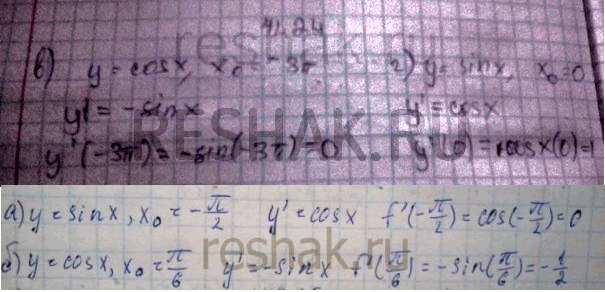 41.24
в) y = cosx, x₀ = -3π г) y = sinx, x₀=0
y' = -sinx y' = cosx
y'(-3π) = -sin(-3π) = 0 y'(0) = cosx(0)=1
RESHAK.RU
а) y = sinx, x₀ = -π/2 y' = cosx f'(-π/2) = cos(-π/2) = 0
reshak.ru
б) y = cosx, x₀ = π/6 y' = -sinx f'(π/6) = -sin(π/6) = -1/2